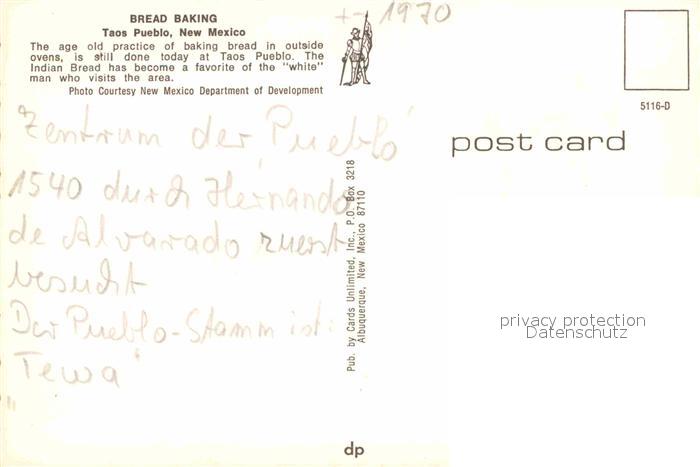 BREAD BAKING
Taos Pueblo, New Mexico
The age old practice of baking bread in outside
ovens, is still done today at Taos Pueblo. The
Indian Bread has become a favorite of the "white"
man who visits the area.
Photo Courtesy New Mexico Department of Development
+- 1970
5116-D
post card
Zentrum der Pueblo
1540 durch Hernando
de Alvarado zuerst
besucht
Der Pueblo-Stamm ist:
Tewa
Pub. by Cards Unlimited, Inc., P.O. Box 3218
Albuquerque, New Mexico 87110
privacy protection
Datenschutz
dp